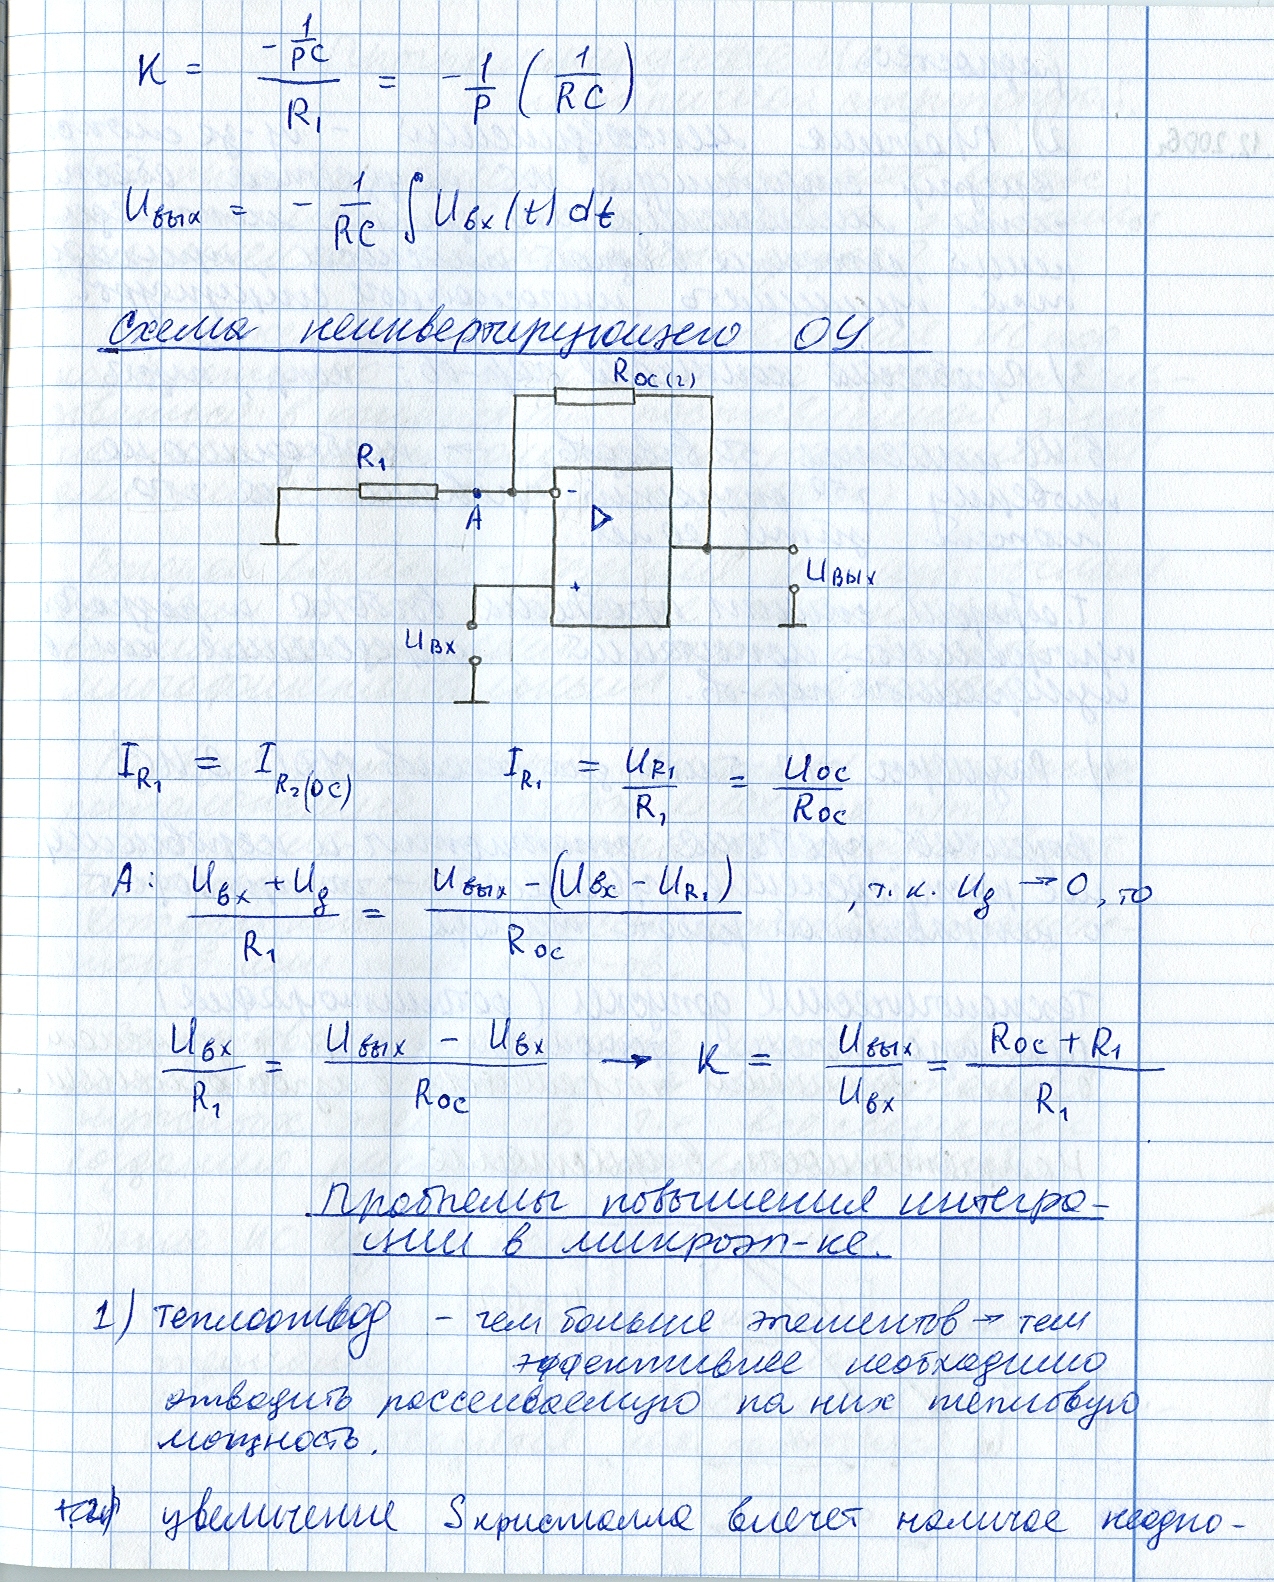 K = (-1/PC)/R₁ = -1/P (1/RC)
Uвых = - 1/RC ∫ Uвх(t) dt
Схема неинвертирующего ОУ
Rос(2)
R₁
A
-
▷
+
Uвых
Uвх
I_R₁ = I_R₂(ОС) I_R₁ = U_R₁/R₁ = Uос/Rос
A: (Uвх + Uд)/R₁ = (Uвых - (Uвх - U_R₁))/Rос , т.к. Uд → 0, то
Uвх/R₁ = (Uвых - Uвх)/Rос → K = Uвых/Uвх = (Rос + R₁)/R₁
Проблемы повышения интегра-
ции в микроэл-ке.
1) теплоотвод - чем больше элементов → тем
эффективнее необходимо
отводить рассеиваемую на них тепловую
мощность.
2) увеличение Sкристалла влечет наличие неодно-